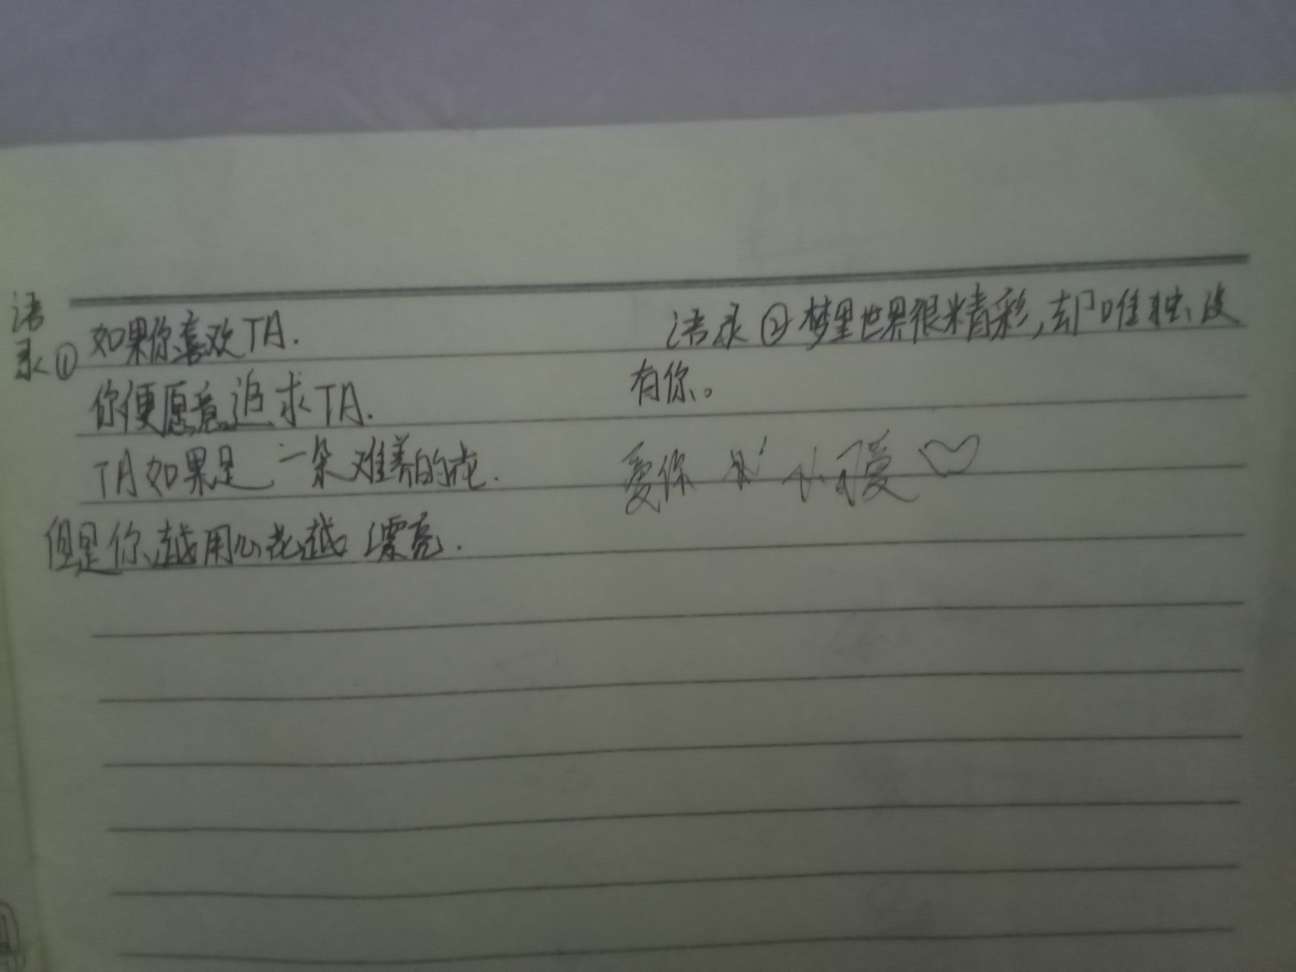 语录① 如果你喜欢TA.
你便愿意追求TA.
TA如果是一朵难养的花.
但是你越用心花越漂亮.
语录② 梦里世界很精彩,却唯独没
有你。
爱你 小可爱